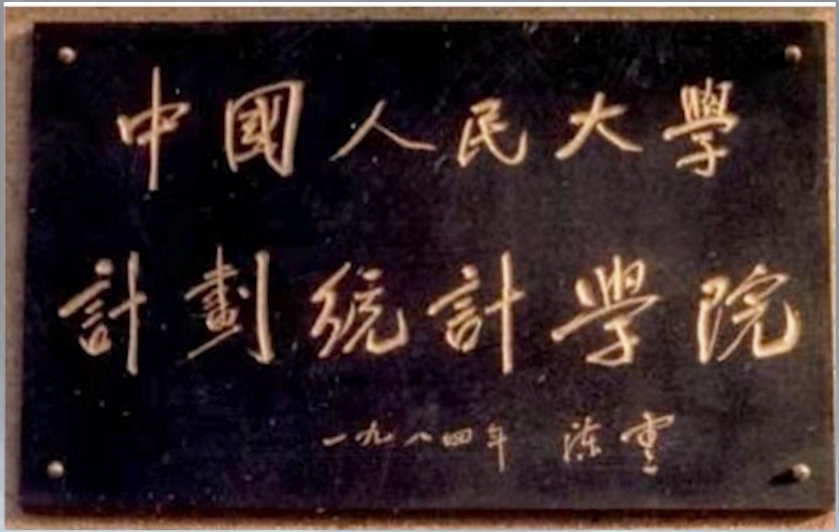 中國人民大學
計劃統計學院
一九八四年 陈雲